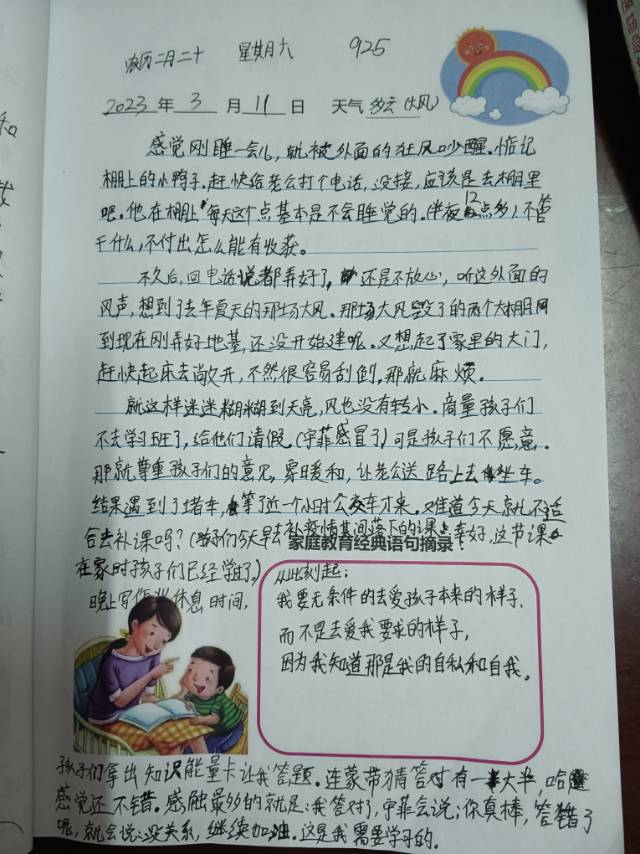 农历二月二十 星期六 925
2023 年 3 月 11 日 天气 多云(大风)
感觉刚睡一会儿，就被外面的狂风吵醒。惦记
棚上的小鸭子。赶快给老公打个电话，没接，应该是去棚里
吧。他在棚上，每天这个点基本是不会睡觉的。(半夜12点多)不管
干什么，不付出怎么能有收获。
不久后，回电话说都弄好了，还是不放心，听这外面的
风声，想到了去年夏天的那场大风。那场大风毁了的两个大棚
到现在刚弄好地基，还没开始建呢。又想起了家里的大门，
赶快起床去敞开，不然很容易刮倒，那就麻烦。
就这样迷迷糊糊到天亮，风也没有转小。商量孩子们
不去学习班了，给他们请假。(宇菲感冒了)可是孩子们不愿意。
那就尊重孩子们的意见，穿暖和，让老公送路上去坐车。
结果遇到了堵车，等了近一个小时公交车才来。难道今天就不适
合去补课吗？(孩子们今天早去补疫情其间落下的课)幸好，这节课
家庭教育经典语句摘录
在家时孩子们已经学了。)
晚上写作业休息时间，
从此刻起：
我要无条件的去爱孩子本来的样子.
而不是去爱我要求的样子，
因为我知道那是我的自私和自我。
孩子们拿出知识能量卡让我答题。连蒙带猜答对有一大半，哈
感觉还不错。感触最多的就是：我答对了，宇菲会说：你真棒，答错了
呢，就会说：没关系，继续加油。这是我需要学习的。